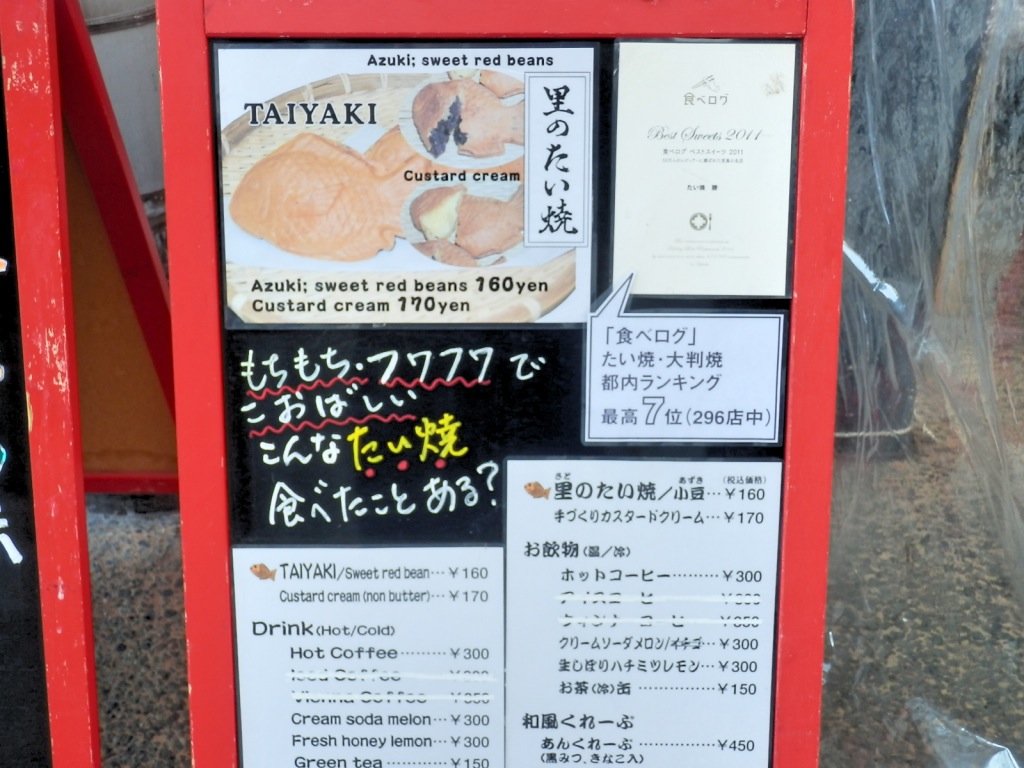 Azuki; sweet red beans
TAIYAKI
里のたい焼
Custard cream
Azuki; sweet red beans 160yen
Custard cream 170yen
食べログ
Best Sweets 2011
食べログ ベストスイーツ 2011
「食べログ」
たい焼・大判焼
都内ランキング
最高7位(296店中)
もちもち・フワフワで
こおばしい
こんなたい焼
食べたことある?
TAIYAKI/Sweet red bean…￥160
Custard cream (non butter)…￥170
Drink(Hot/Cold)
Hot Coffee………￥300
Iced Coffee
Vienna Coffee ￥350
Cream soda melon…￥300
Fresh honey lemon…￥300
Green tea…………￥150
さと あずき (税込価格)
里のたい焼/小豆…￥160
手づくりカスタードクリーム…￥170
お飲物(温/冷)
ホットコーヒー………￥300
アイスコーヒー
ウィンナーコーヒー ￥350
クリームソーダメロン/イチゴ…￥300
生しぼりハチミツレモン…￥300
お茶(冷)缶……………￥150
和風くれーぷ
あんくれーぷ……………￥450
(黒みつ、きなこ入)